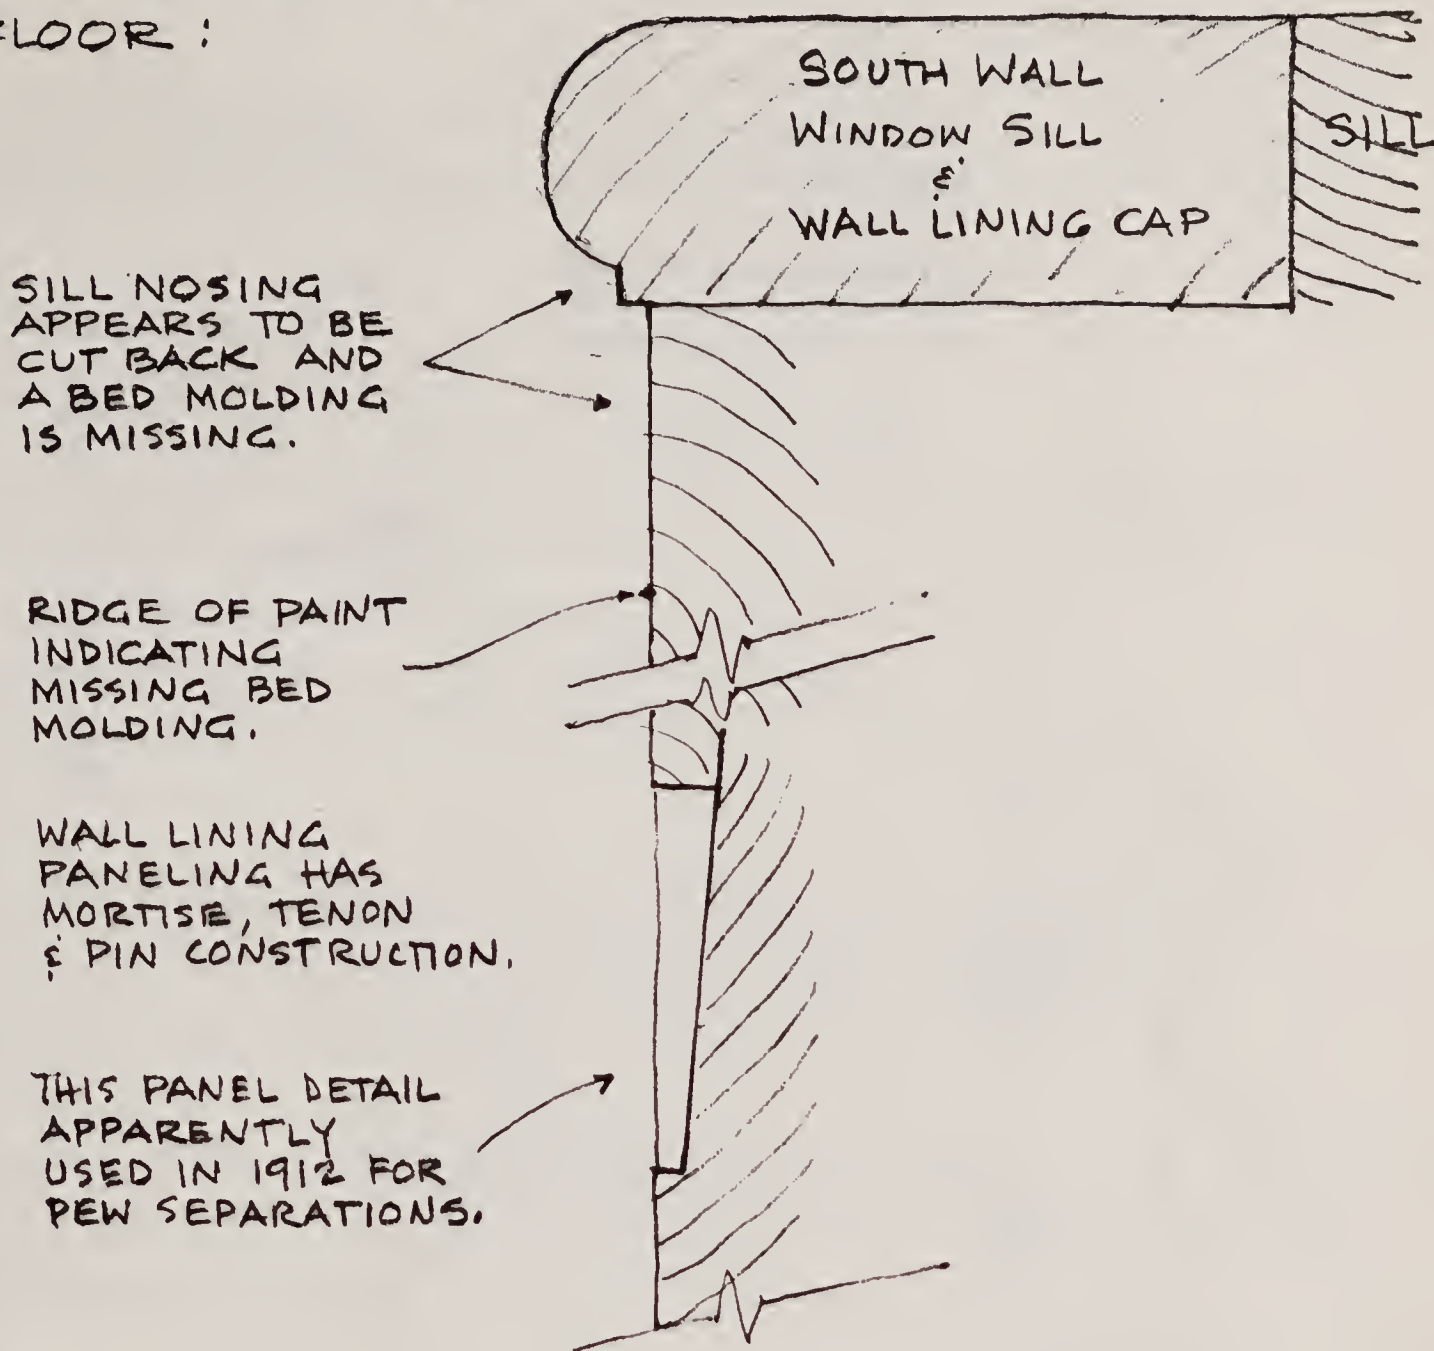 FLOOR :
SOUTH WALL
WINDOW SILL
&
WALL LINING CAP
SILL
SILL NOSING
APPEARS TO BE
CUT BACK AND
A BED MOLDING
IS MISSING.
RIDGE OF PAINT
INDICATING
MISSING BED
MOLDING.
WALL LINING
PANELING HAS
MORTISE, TENON
& PIN CONSTRUCTION.
THIS PANEL DETAIL
APPARENTLY
USED IN 1912 FOR
PEW SEPARATIONS.